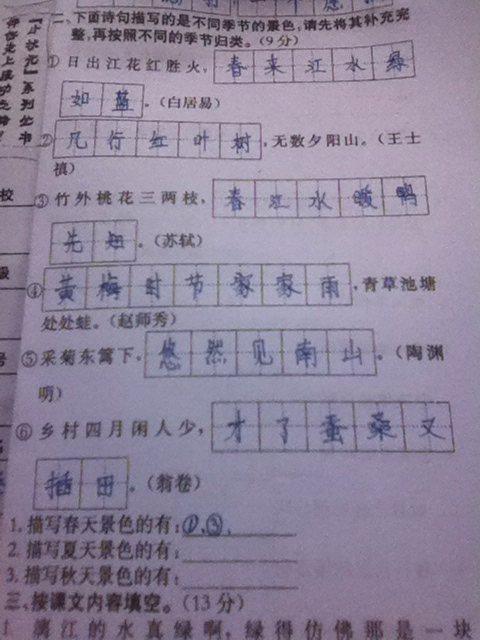 二、下面诗句描写的是不同季节的景色,请先将其补充完
整,再按照不同的季节归类。(9分)
①日出江花红胜火,春来江水绿
如蓝。(白居易)
②几行红叶树,无数夕阳山。(王士
禛)
③竹外桃花三两枝,春江水暖鸭
先知。(苏轼)
④黄梅时节家家雨,青草池塘
处处蛙。(赵师秀)
⑤采菊东篱下,悠然见南山。(陶渊
明)
⑥乡村四月闲人少,才了蚕桑又
插田。(翁卷)
1.描写春天景色的有:①、③、
2.描写夏天景色的有:
3.描写秋天景色的有:
三、按课文内容填空。(13分)
1.漓江的水真绿啊,绿得仿佛那是一块